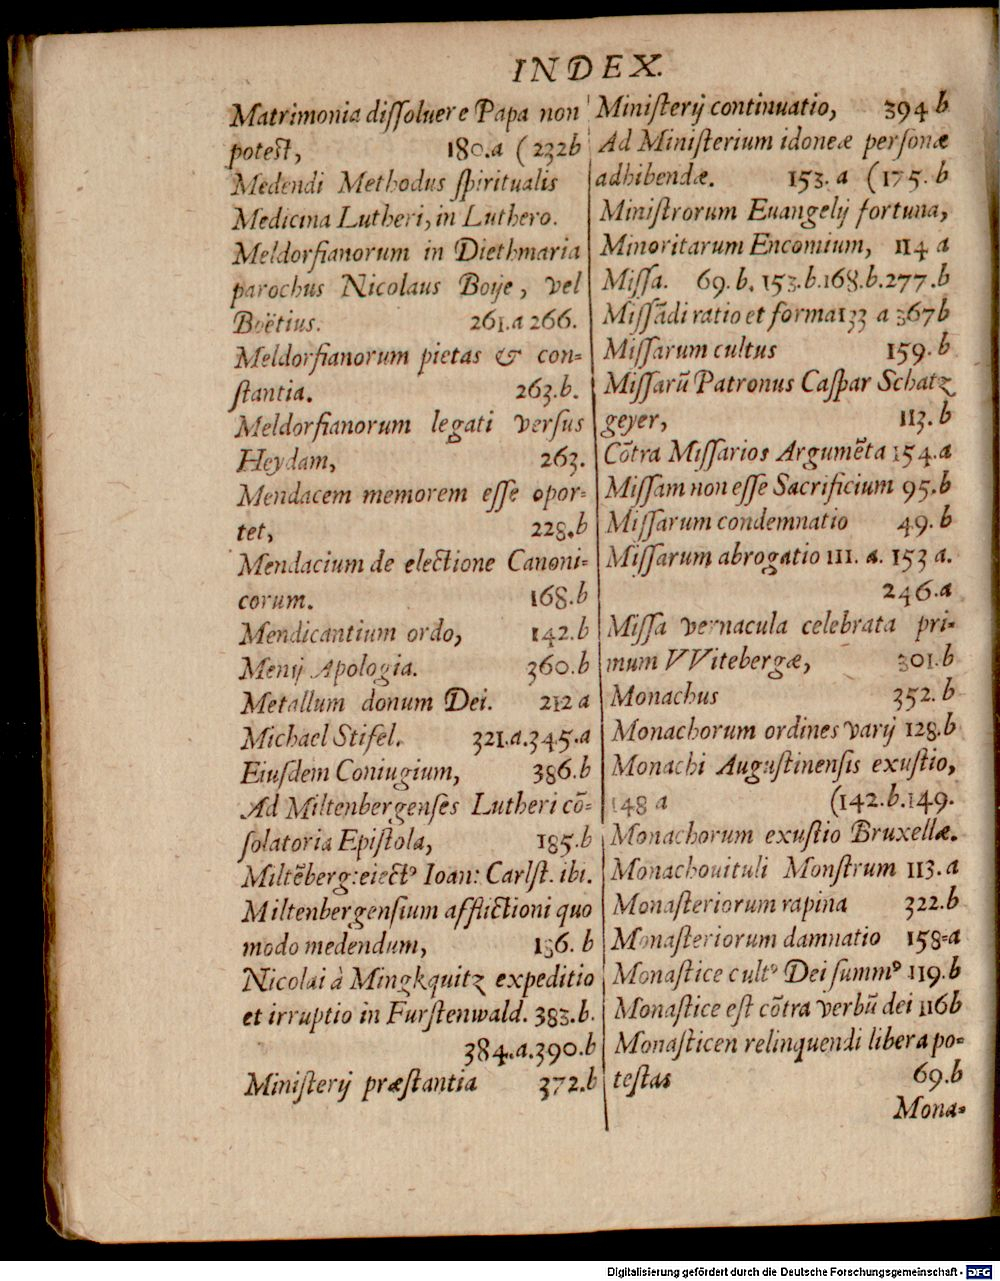 INDEX.
Matrimonia diſſoluere Papa non
poteſt, 180.a (232b
Medendi Methodus ſpiritualis
Medicina Lutheri, in Luthero.
Meldorfianorum in Diethmaria
parochus Nicolaus Boije, vel
Boëtius. 261.a 266.
Meldorfianorum pietas & con-
ſtantia. 263.b.
Meldorfianorum legati verſus
Heydam, 263.
Mendacem memorem eſſe opor-
tet, 228.b
Mendacium de electione Canoni-
corum. 168.b
Mendicantium ordo, 142.b
Menij Apologia. 360.b
Metallum donum Dei. 212 a
Michael Stifel. 321.a.345.a
Eiuſdem Coniugium, 386.b
Ad Miltenbergenſes Lutheri cō-
ſolatoria Epiſtola, 185.b
Miltēberg: eiectꝰ Ioan: Carlſt. ibi.
Miltenbergenſium afflictioni quo
modo medendum, 186. b
Nicolai à Mingkquitz expeditio
et irruptio in Furſtenwald. 383.b.
384.a.390.b
Miniſterij præſtantia 372.b
Miniſterij continuatio, 394 b
Ad Miniſterium idoneæ perſonæ
adhibendæ. 153. a (175. b
Miniſtrorum Euangelij fortuna,
Minoritarum Encomium, 114 a
Miſſa. 69.b. 153.b.168.b.277.b
Miſſādi ratio et forma 133 a 367b
Miſſarum cultus 159. b
Miſſarū Patronus Caſpar Schatz
geyer, 113. b
Cōtra Miſſarios Argumēta 154.a
Miſſam non eſſe Sacrificium 95.b
Miſſarum condemnatio 49. b
Miſſarum abrogatio 111. a. 153 a.
246.a
Miſſa vernacula celebrata pri-
mum VVitebergæ, 301.b
Monachus 352. b
Monachorum ordines varij 128.b
Monachi Auguſtinenſis exuſtio,
148 a (142.b.149.
Monachorum exuſtio Bruxellæ.
Monachouituli Monſtrum 113.a
Monaſteriorum rapina 322.b
Monaſteriorum damnatio 158-a
Monaſtice cultꝰ Dei ſummꝰ 119.b
Monaſtice eſt cōtra verbū dei 116b
Monaſticen relinquendi libera po-
teſtas 69.b
Mona-
Digitalisierung gefördert durch die Deutsche Forschungsgemeinschaft - DFG